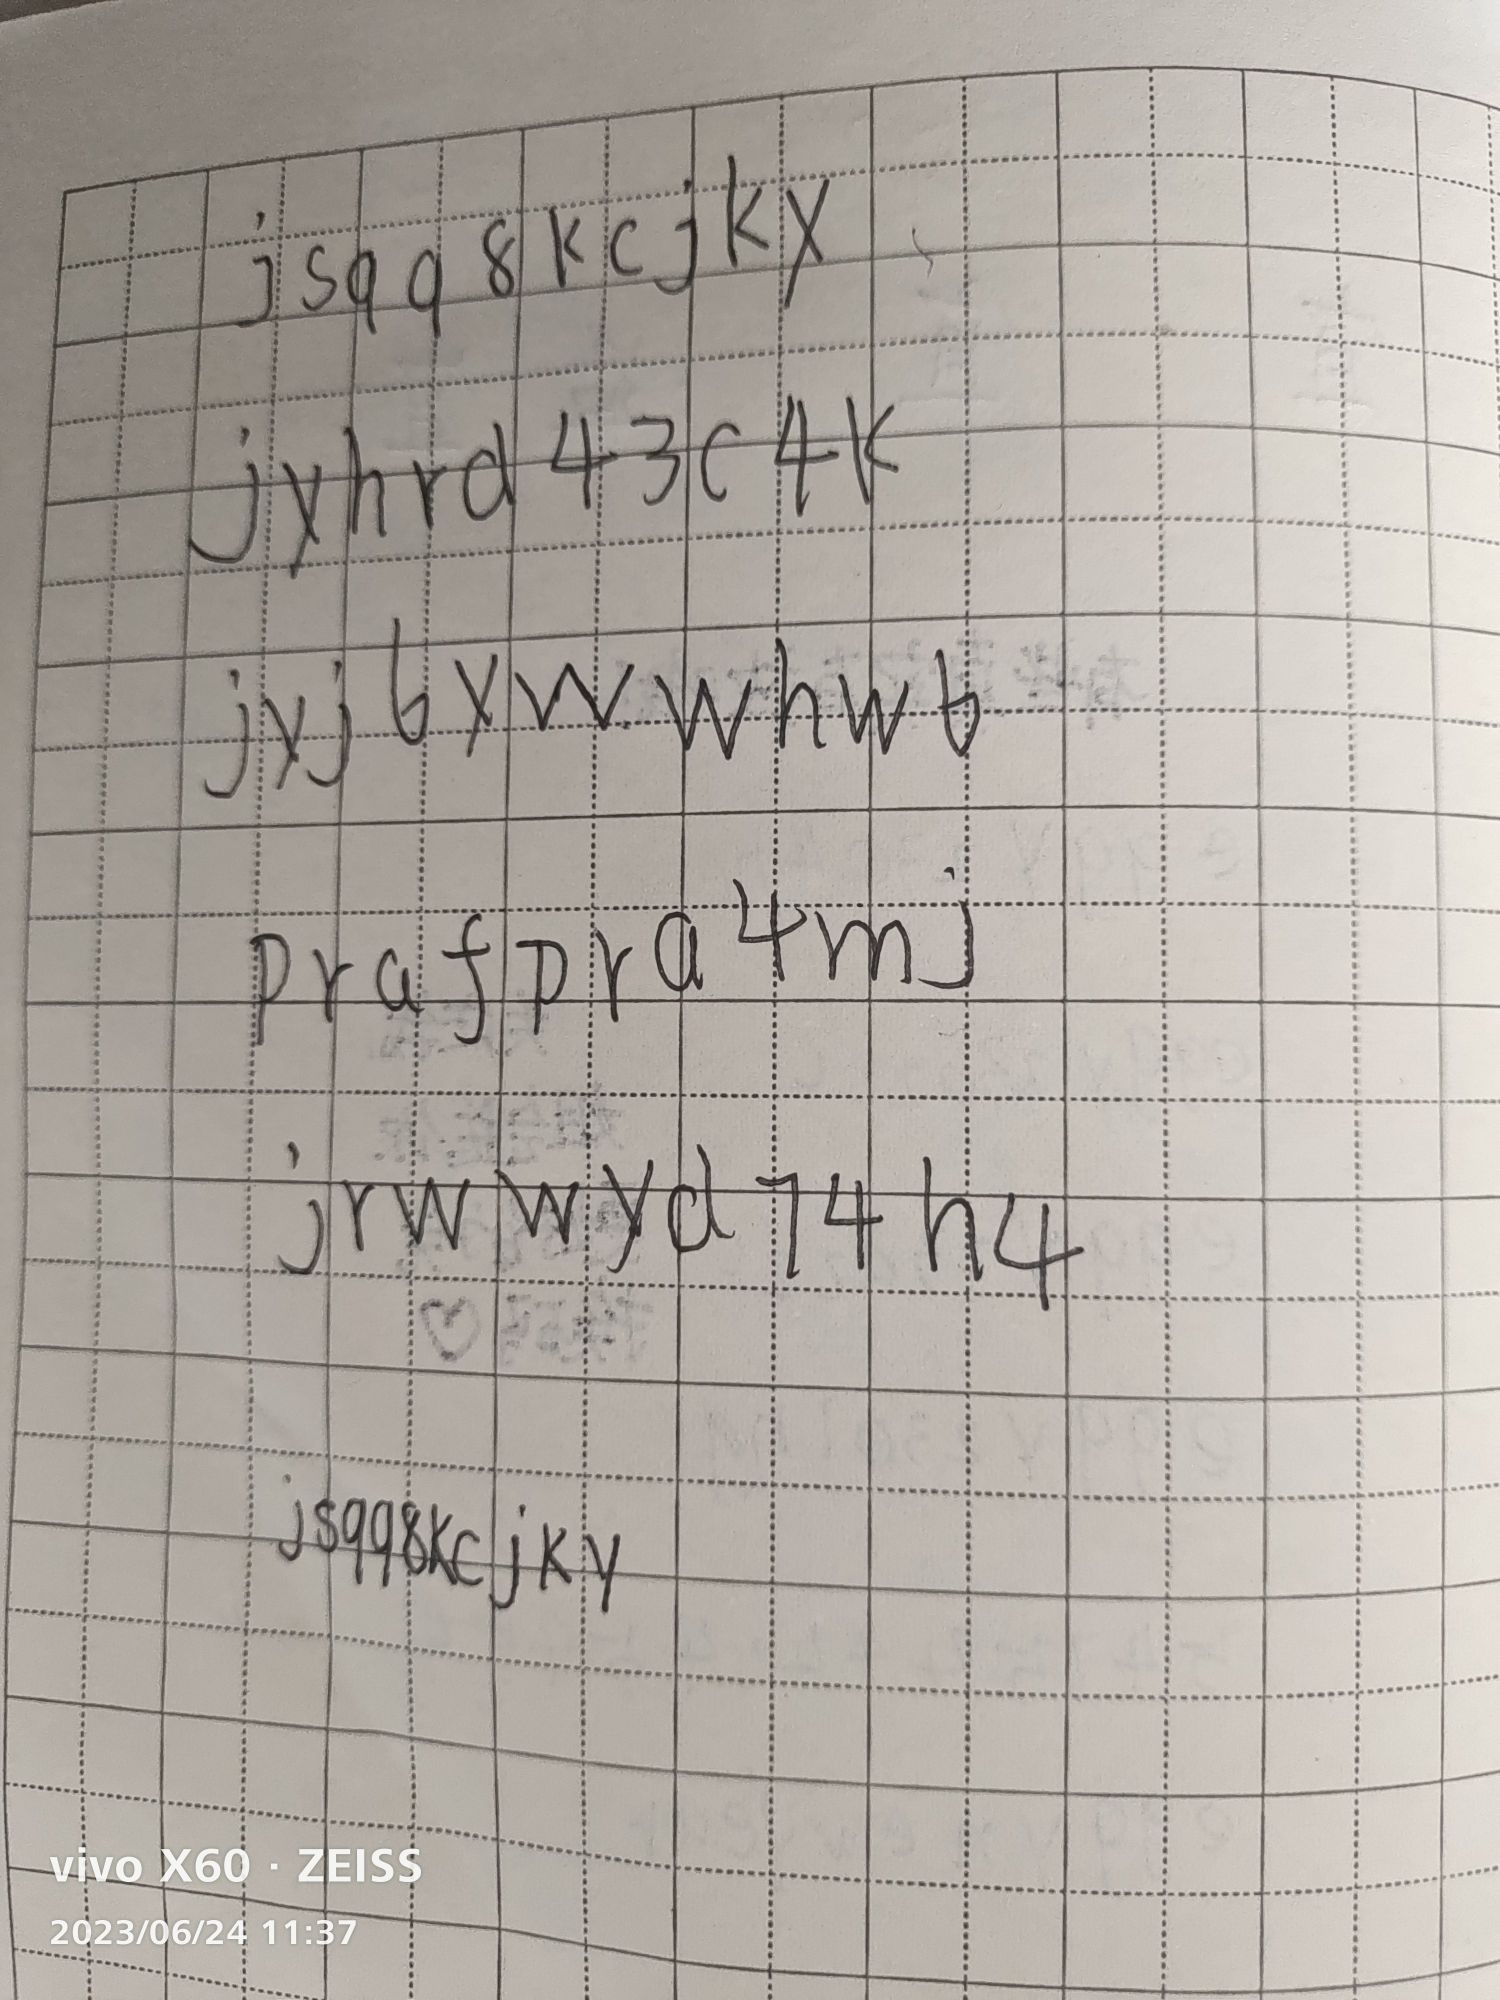 jsqq8kcjky
jyhrd43c4k
jyj6ywwhw6
prafpra4mj
jrwwyd74h4
jsqq8kcjky
vivo X60 · ZEISS
2023/06/24 11:37